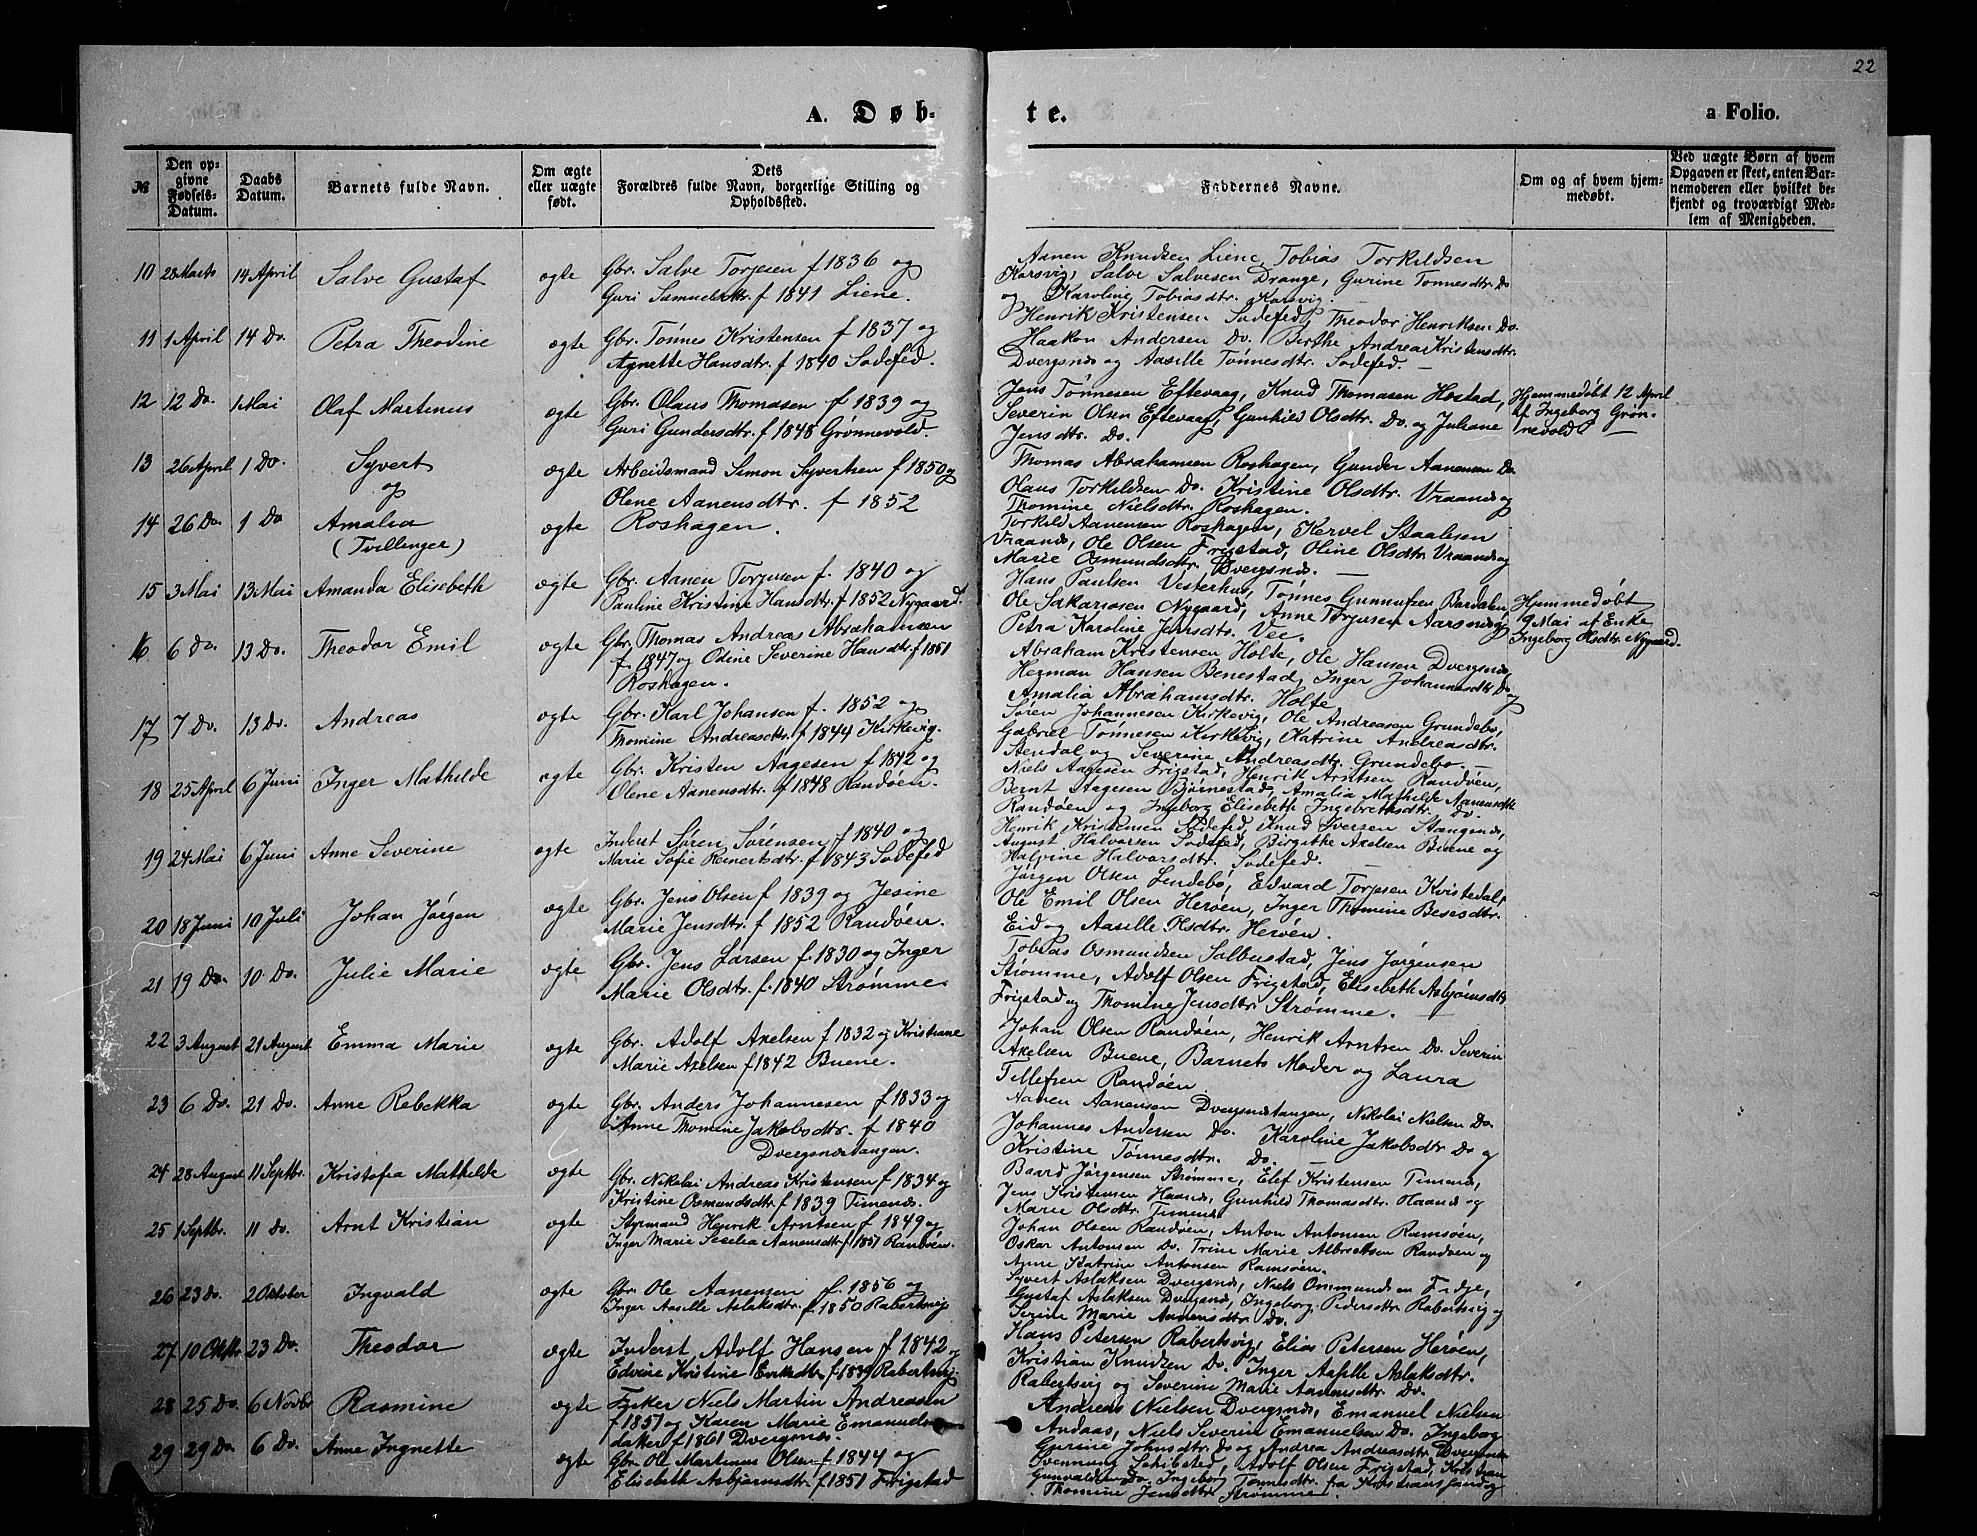 22
A. Døb-
te.
a Folio.
№
Den op-
givne
Fødsels-
Datum.
Daabs
Datum.
Barnets fulde Navn.
Om ægte
eller uægte
født.
Dets
Forældres fulde Navn, borgerlige Stilling og
Opholdssted.
Faddernes Navne.
Om og af hvem hjem-
medøbt.
Ved uægte Børn af hvem
Opgaven er skeet, enten Bar-
nemoderen eller hvilket be-
kjendt og troværdigt Med-
lem af Menigheden.
10 28 Marts 14 April Salve Gustaf ægte Gbr. Salve Torjesen f 1836 og
Guri Samuelsdtr. f 1841 Liene.
Aanen Knudsen Liene, Tobias Torkildsen
Korsvig, Salve Salvesen Drange, Gurine Tønnesdtr. Do
og Karoline Tobiasdtr. Korsvig.
11 1 April 14 Do. Petra Theodine ægte Gbr. Tønnes Kristensen f 1837 og
Agnette Hansdtr. f 1840 Sodefed.
Henrik Kristensen Sodefed, Theodor Henriksen Do.
Haakon Andersen Do. Birthe Andrea Kristensdtr.
Dvergsnes og Aasille Tønnesdtr. Sodefed.
12 12 Do. 1 Mai Olaf Martinus ægte Gbr. Olaus Thomasen f 1839 og
Guri Gundersdtr. f 1848 Grønnevold.
Jens Tønnesen Eftevaag, Knud Thomasen Hostad,
Severin Olsen Eftevaag, Gunhild Olsdtr. Do. og Juliane
Jensdtr. Do.
Hjemmedøbt 12 April
af Ingeborg Grøn-
nevold
13 26 April 1 Do. Syvert ægte Arbeidsmand Simon Syvertsen f 1850 og
og
Olene Aanensdtr. f 1852
Thomas Abrahamsen Roshagen, Gunder Aanensen Do.
Olaus Torkildsen Do. Kristine Olsdtr. Vraanes og
Thomine Nielsdtr. Roshagen.
14 26 Do. 1 Do Amalia ægte Roshagen.
(Tvillinger)
Torkild Aanensen Roshagen, Kervel Staalesen
Vraanes, Ole Olsen Frigstad, Oline Olsdtr. Vraanes og
Marie Osmundsdtr. Dvergsnes.
15 3 Mai 13 Mai Amanda Elisebeth ægte Gbr. Aanen Torjusen f. 1840 og
Pauline Kristine Hansdtr. f 1852 Nygaard.
Hans Paulsen Vesterhus, Tønnes Gunnufsen Bordalen,
Ole Sakariasen Nygaard, Anne Torjusen Aarsnes og
Petra Karoline Jensdtr. Vee.
Hjemmedøbt
9 Mai af Enke
Ingeborg Olsdtr. Nygaard.
16 6 Do. 13 Do. Theodor Emil ægte Gbr. Thomas Andreas Abrahamsen
f. 1847 og Odine Severine Hansdtr. f 1851
Roshagen.
Abraham Kristensen Holte, Ole Hansen Dvergsnes,
Herman Hansen Benestad, Inger Johannesdtr. Do og
Amalia Abrahamsdtr. Holte
17 7 Do. 13 Do. Andreas ægte Gbr. Karl Johansen f. 1852 og
Thomine Andreasdtr. f 1844 Kirkevig.
Søren Johannesen Kirkevig, Ole Andreasen Grundebø,
Gabriel Tønnesen Kirkevig, Katrine Andreasdtr.
Aendal og Severine Andreasdtr. Grundebø.
18 25 April 6 Juni Inger Mathilde ægte Gbr. Kristen Aagesen f 1842 og
Olene Aanensdtr. f 1848 Randøen.
Niels Aagesen Frigstad, Henrik Arntsen Randøen,
Bernt Aagesen Bjørnestad, Amalia Mathilde Aanensdtr.
Randøen og Ingeborg Elisebeth Ingebretsdtr. Do.
19 24 Mai 6 Juni Anne Severine ægte Inderst Søren Sørensen f 1840 og
Marie Sofie Reinertsdtr. f 1843 Sodefed
Henrik Kristensen Sodefed, Knud Iversen Stangenes,
August Halvorsen Sodefed, Birgithe Axelsen Buene og
Halvine Halvorsdtr. Sodefed.
20 18 Juni 10 Juli Johan Jørgen ægte Gbr. Jens Olsen f 1839 og Jesine
Marie Jensdtr. f 1852 Randøen.
Jørgen Olsen Lindebø, Edvard Torjesen Kvistedal,
Ole Emil Olsen Herøen, Inger Thomine Besesdtr.
Eid og Aasille Olsdtr. Herøen.
21 19 Do. 10 Do. Julie Marie ægte Gbr. Jens Larsen f. 1830 og Inger
Marie Olsdtr. f. 1840 Strømme.
Tobias Osmundsen Salbustad, Jens Jørgensen
Strømme, Adolf Olsen Frigstad, Elisebeth Asbjørnsdtr.
Frigstad og Thomine Jensdtr. Strømme.
22 3 August 21 August Emma Marie ægte Gbr. Adolf Axelsen f 1832 og Kristiane
Marie Axelsen f 1842 Buene.
Johan Olsen Randøen, Henrik Arntsen Do. Severin
Axelsen Buene, Barnets Moder og Laura
Tellefsen Randøen.
23 6 Do. 21 Do. Anne Rebekka ægte Gbr. Anders Johannesen f 1833 og
Anne Thomine Jakobsdtr. f. 1840
Dvergsnestangen.
Aanen Aanensen Dvergsnestangen, Nikolai Nielsen Do.
Johannes Andersen Do. Karoline Jakobsdtr. Do og
Kristine Tønnesdtr. Do.
24 28 August 11 Septbr. Kristofia Mathilde ægte Gbr. Nikolai Andreas Kristensen f 1834 og
Kristine Osmundsdtr. f 1839 Timenes.
Baard Jørgensen Strømme, Elef Kristensen Timenes,
Jens Kristensen Haanes, Gunhild Thomasdtr. Haanes og
Marie Olsdtr. Timenes.
25 1 Septbr. 11 Do. Arnt Kristian ægte Styrmand Henrik Arntsen f 1849 og
Inger Marie Seselia Aanensdtr. f 1851 Randøen.
Johan Olsen Randøen, Anton Antonsen Ramsøen,
Oskar Antonsen Do. Trine Marie Albretsen Randøen og
Anne Katrine Antonsen Ramsøen.
26 23 Do. 2 Oktober Ingvald ægte Gbr. Ole Aanensen f. 1856 og
Inger Aasille Aslaksdtr. f 1850 Rabertsvig
Syvert Aslaksen Dvergsnes, Niels Ommundsen Fidje,
Gustaf Aslaksen Dvergsnes, Ingeborg Pedersdtr. Rabertsvig og
Serine Marie Aanensdtr. Do.
27 10 Oktbr. 23 Do. Theodor ægte Inderst Adolf Hansen f 1842 og
Edvine Kristine Eriksdtr. f 1839 Rabertsvig.
Hans Petersen Rabertsvig, Elias Petersen Herøen,
Kristian Knudsen Do. Inger Aasille Aslaksdtr.
Rabertsvig og Severine Marie Aanensdtr. Do.
28 25 Do. 6 Novbr. Rasmine ægte Fisker Niels Martin Andreasen
f 1857 og Karen Marie Emanuels-
datter f 1861 Dvergsnes.
Andreas Nielsen Dvergsnes, Emanuel Nielsen
Andaas, Niels Severin Emanuelsen Do. Ingeborg
Gurine Johnsdtr. Do og Andrea Andreasdtr. Dvergsnes
29 29 Do. 6 Do. Anne Ingnette ægte Gbr. Ole Martinus Olsen f 1844 og
Elisebeth Asbjørnsdtr. f 1851 Frigstad
Svennung Schibsted, Adolf Olsen Frigstad, Kristian
Gunvaldsen Do, Ingeborg Tønnesdtr. fra Kristiansand og
Thomine Jensdtr. Strømme.